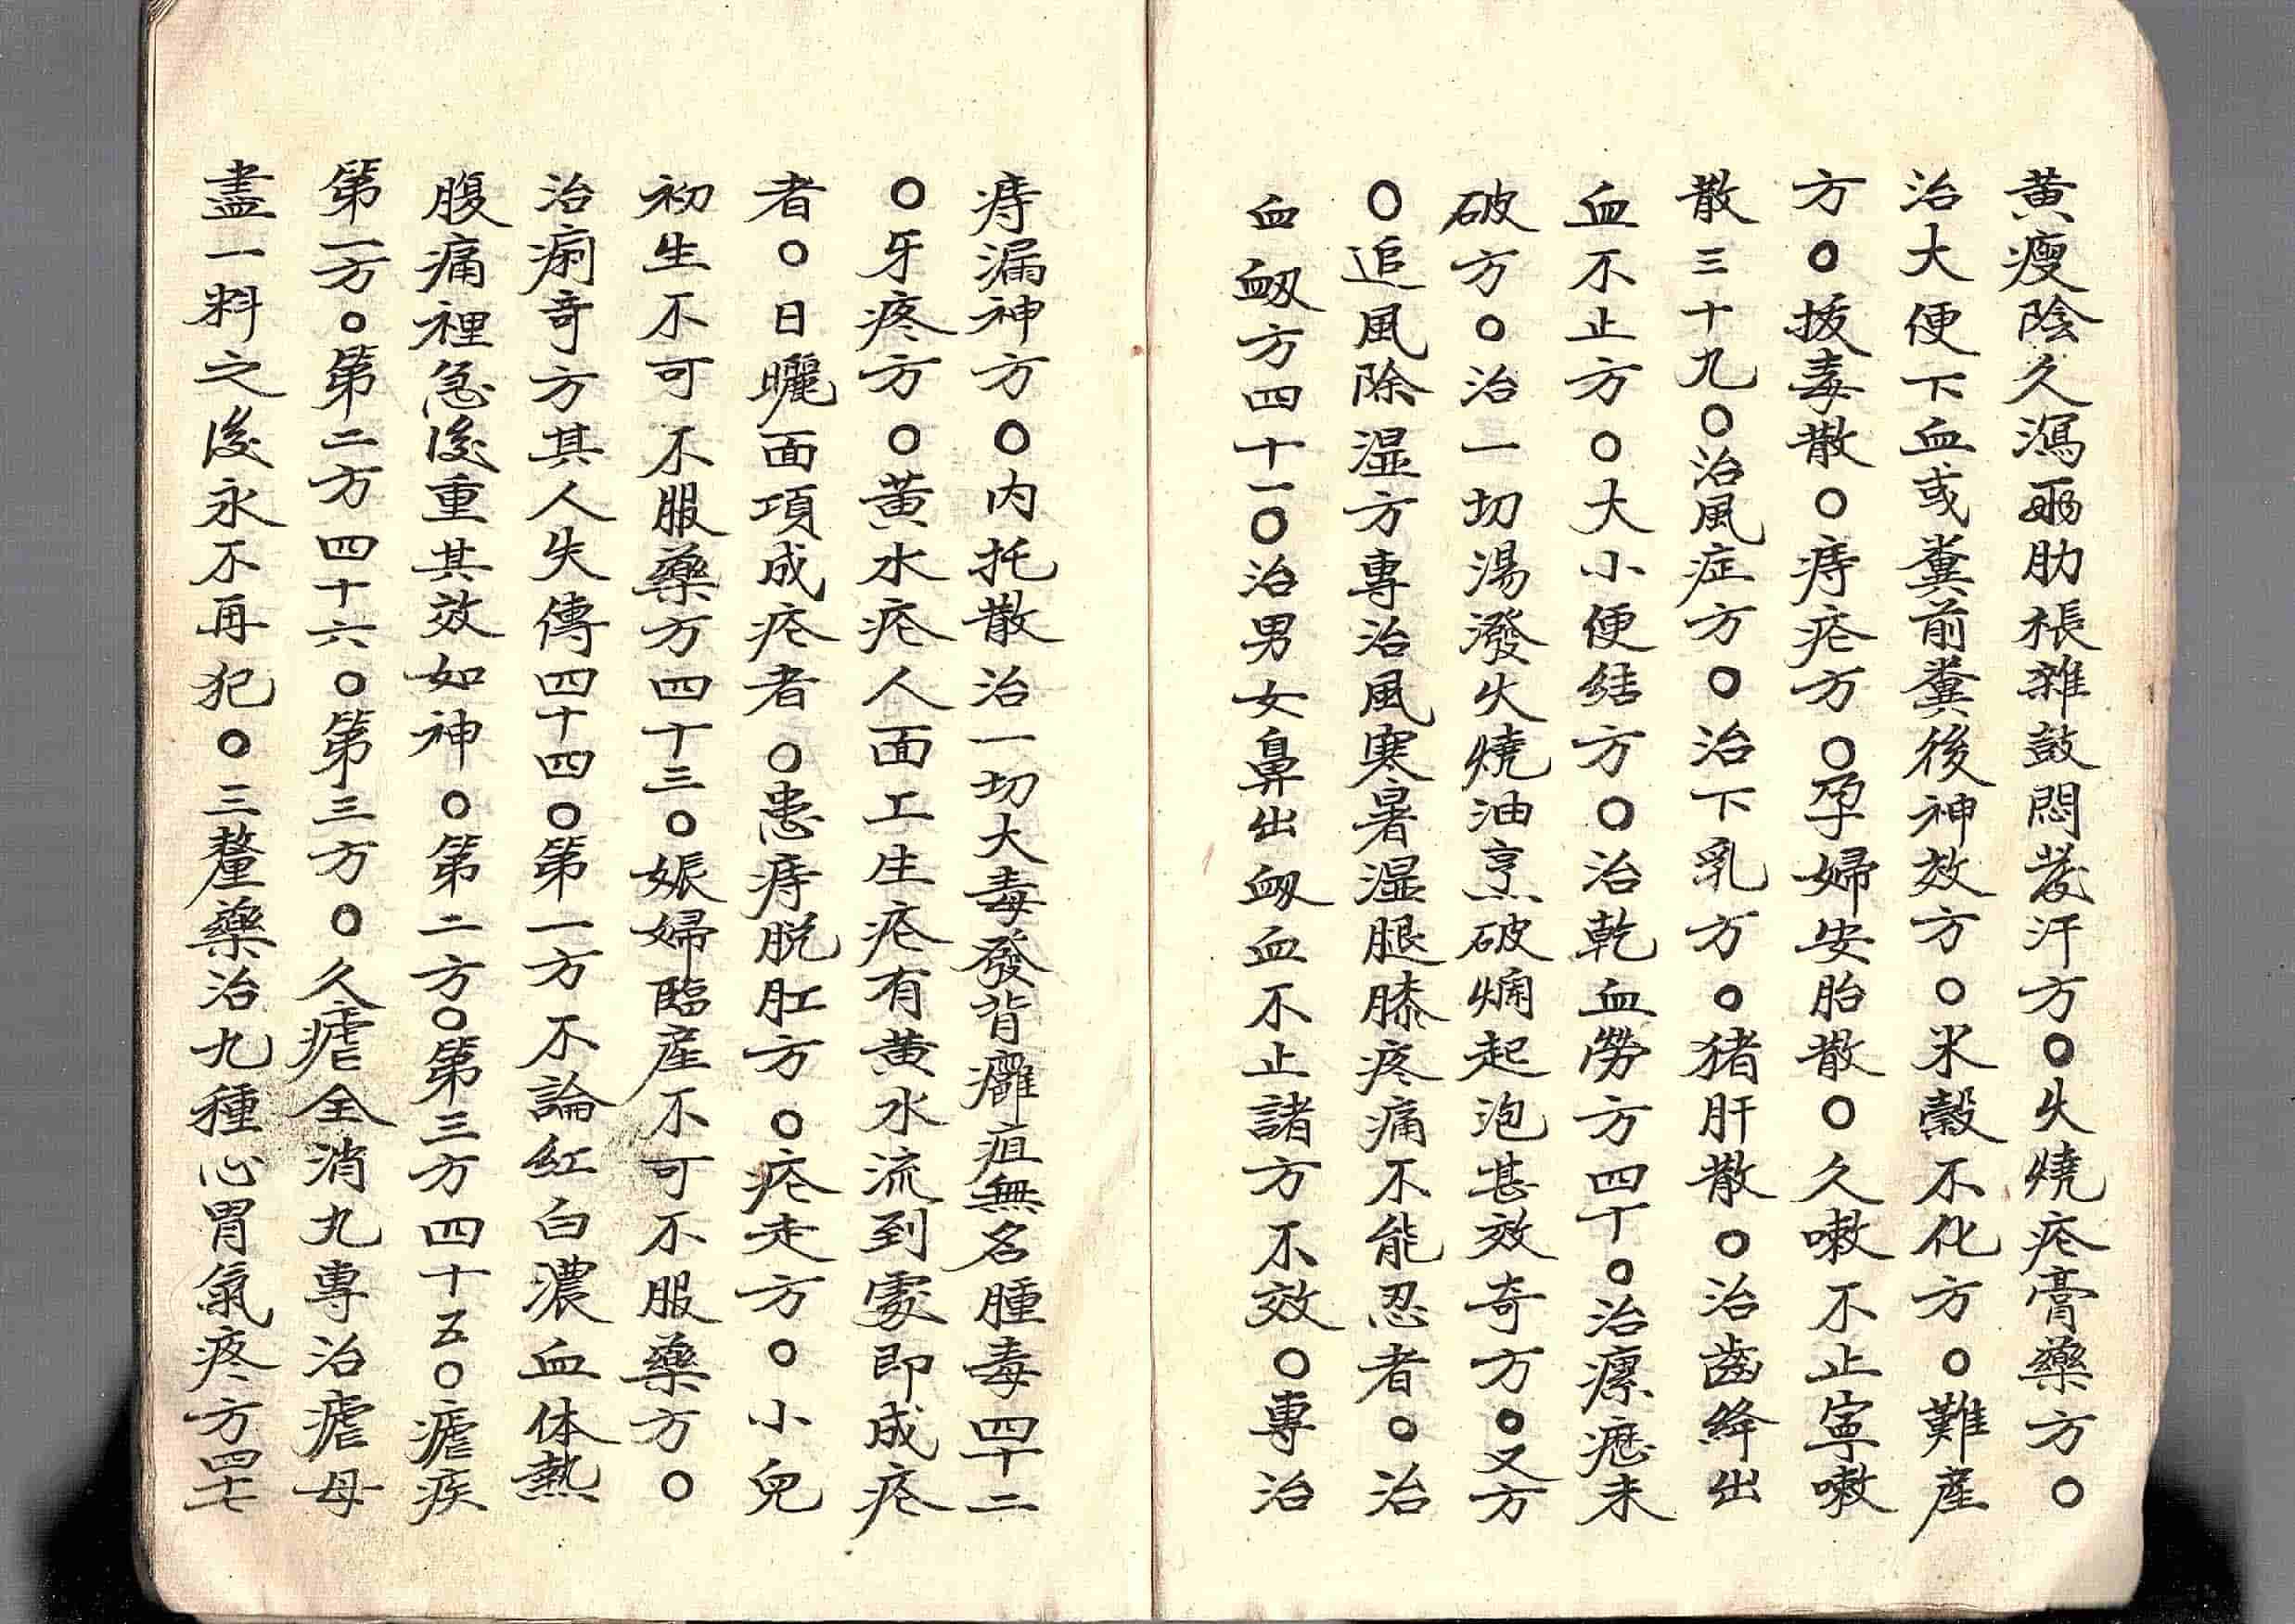 黄瘦陰久瀉兩肋梹雜鼓悶發汗方〇火燒疙膏藥方〇
治大便下血或糞前糞後神效方〇米穀不化方〇難産
方〇拔毒散〇痔疙方〇孕婦安胎散〇久嗽不止寧嗽
散三十九〇治風症方〇治下乳方〇猪肝散〇治齒絳出
血不止方〇大小便结方〇治乾血勞方四十〇治瘰癧未
破方〇治一切湯潑火燒油烹破爛起泡甚效奇方〇又方
〇追風除湿方專治風寒暑湿腿膝疼痛不能忍者〇治
血衂方四十一〇治男女鼻出衂血不止諸方不效〇專治
痔漏神方〇内托散治一切大毒發背癰疽無名腫毒四十二
〇牙疼方〇黄水疙人面工生疙有黄水流到處即成疙
者〇日曬面項成疙者〇患痔脱肛方〇疙走方〇小兒
初生不可不服藥方四十三〇娠婦臨産不可不服藥方〇
治痢奇方其人失傳四十四〇第一方不論紅白濃血体熱
腹痛裡急後重其效如神〇第二方〇第三方四十五〇瘧疾
第一方〇第二方四十六〇第三方〇久瘧全消丸專治瘧母
盡一料之後永不再犯〇三釐藥治九種心胃氣疼方四十七